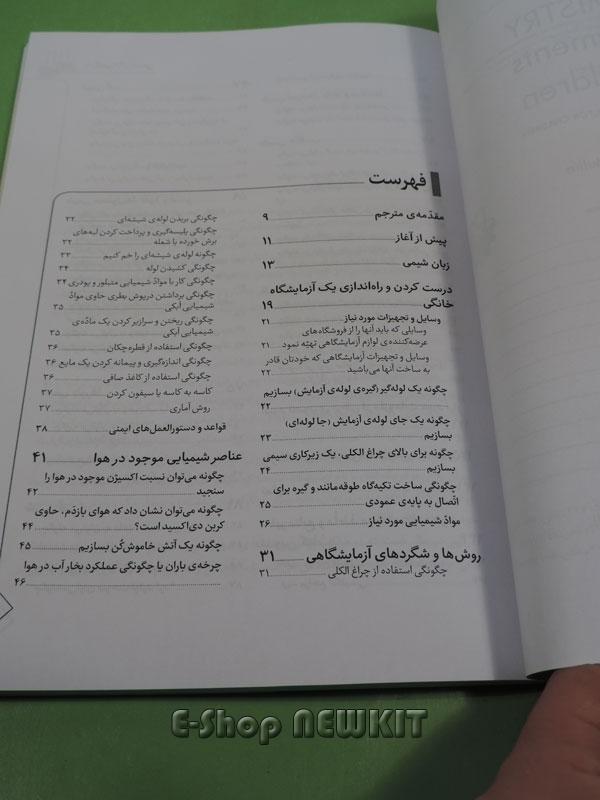 فهرست
مقدّمه‌ی مترجم ۹
پیش از آغاز ۱۱
زبان شیمی ۱۳
درست کردن و راه‌اندازی یک آزمایشگاه
خانگی ۱۹
وسایل و تجهیزات مورد نیاز ۲۱
وسایلی که باید آنها را از فروشگاه‌های
عرضه‌کننده‌ی لوازم آزمایشگاهی تهیّه نمود ۲۱
وسایل و تجهیزات آزمایشگاهی که خودتان قادر
به ساخت آنها می‌باشید ۲۲
چگونه یک لوله‌گیر (گیره‌ی لوله‌ی آزمایش) بسازیم
۲۲
چگونه یک جای لوله‌ی آزمایش (جا لوله‌ای)
بسازیم ۲۳
چگونه برای بالای چراغ الکلی، یک زیرکاری سیمی
بسازیم ۲۴
چگونگی ساخت تکیه‌گاه طوقه‌مانند و گیره برای
اتّصال به پایه‌ی عمودی ۲۵
موادّ شیمیایی مورد نیاز ۲۶
روش‌ها و شگردهای آزمایشگاهی ۳۱
چگونگی استفاده از چراغ الکلی ۳۱
چگونگی بریدن لوله‌ی شیشه‌ای ۳۲
چگونگی پلیسه‌گیری و پرداخت کردن لبه‌های
برش خورده با شعله ۳۲
چگونه لوله‌ی شیشه‌ای را خم کنیم ۳۳
چگونگی کشیدن لوله ۳۴
چگونگی کار با موادّ شیمیایی متبلور و پودری ۳۴
چگونگی برداشتن درپوش بطری حاوی موادّ
شیمیایی آبکی ۳۵
چگونگی ریختن و سرازیر کردن یک مادّه‌ی
شیمیایی آبکی ۳۵
چگونگی استفاده از قطره‌چکان ۳۶
چگونگی اندازه‌گیری و پیمانه کردن یک مایع ۳۶
چگونگی استفاده از کاغذ صافی ۳۶
کاسه به کاسه یا سیفون کردن ۳۷
روش آماری ۳۷
قواعد و دستورالعمل‌های ایمنی ۳۸
عناصر شیمیایی موجود در هوا ۴۱
چگونه می‌توان نسبت اکسیژن موجود در هوا را
سنجید ۴۲
چگونه می‌توان نشان داد که هوای بازدَم، حاوی
کربن دی‌اکسید است؟ ۴۴
چگونه یک آتش خاموش‌کُن بسازیم ۴۵
چرخه‌ی باران یا چگونگی عملکرد بخار آب در هوا
۴۶
E-Shop NEWKIT